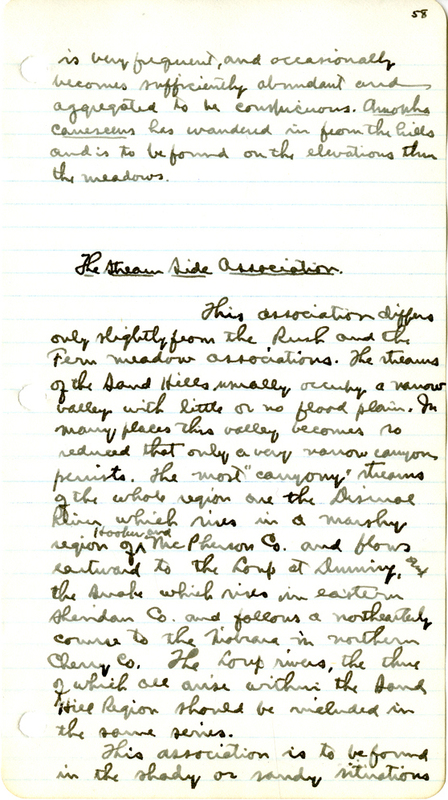 58
is very frequent, and occasionally
becomes sufficiently abundant and
aggregated to be conspicuous. Amorpha
canescens has wandered in from the hills
and is to be found on the elevations thru
the meadows.
The Stream Side Association.
This association differs
only slightly from the Rush and the
Fern meadow associations. The streams
of the Sand Hills usually occupy a narrow
valley with little or no flood plain. In
many places this valley becomes so
reduced that only a very narrow canyon
persists. The most "canyony" streams
of the whole region are the Dismal
River, which rises in a marshy
region of Hooker and McPherson Co. and flows
eastward to the Loup at Dunning, and
the Snake which rises in eastern
Sheridan Co. and follows a northeasterly
course to the Niobrara in northern
Cherry Co. The Loup rivers, the three
of which all arise within the Sand
Hill Region should be included in
the same series.
This association is to be found
in the shady or sandy situations